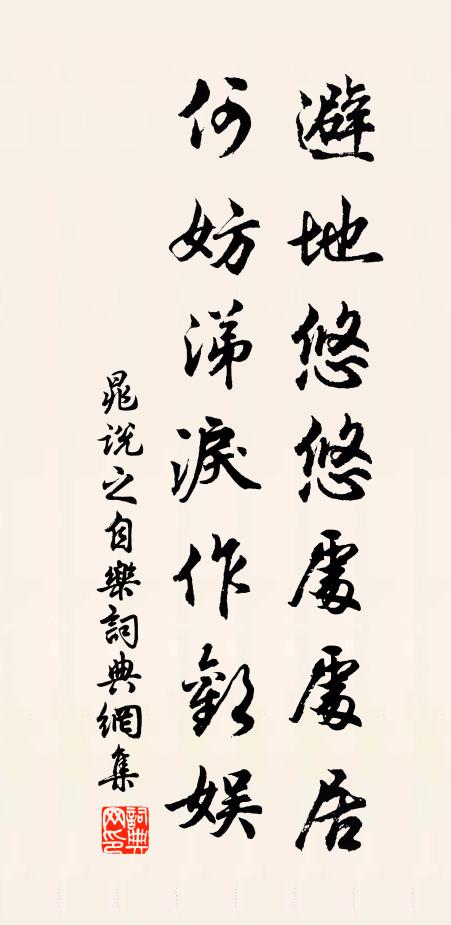 避地悠悠處處居
何妨涕淚作歡娛
晁說之自樂詞典網集
詞典網印